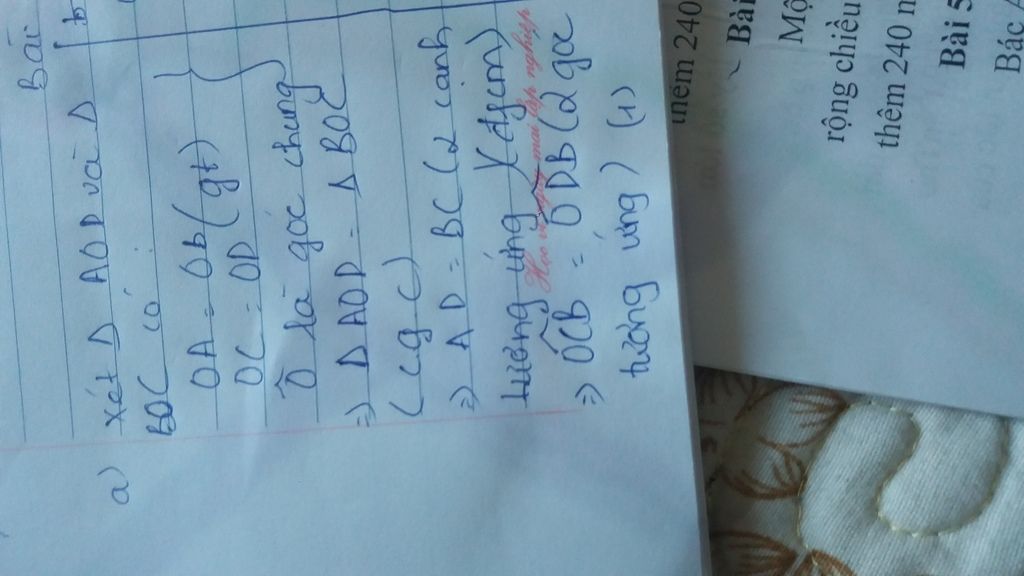 Bài
a) Xét Δ AOD và Δ
BOC có :
OA = OB (gt)
OC = OD
Ô là góc chung
=> Δ AOD = Δ BOC
(c g c)
=> AD = BC (2 cạnh
tương ứng) (đpcm)
=> OCB = ODB (2 góc
tương ứng) (1)
b
Học vì ngày mai lập nghiệp
thêm 240
Bài
Mộ
rộng chiều
thêm 240 n
Bài 5
Bác